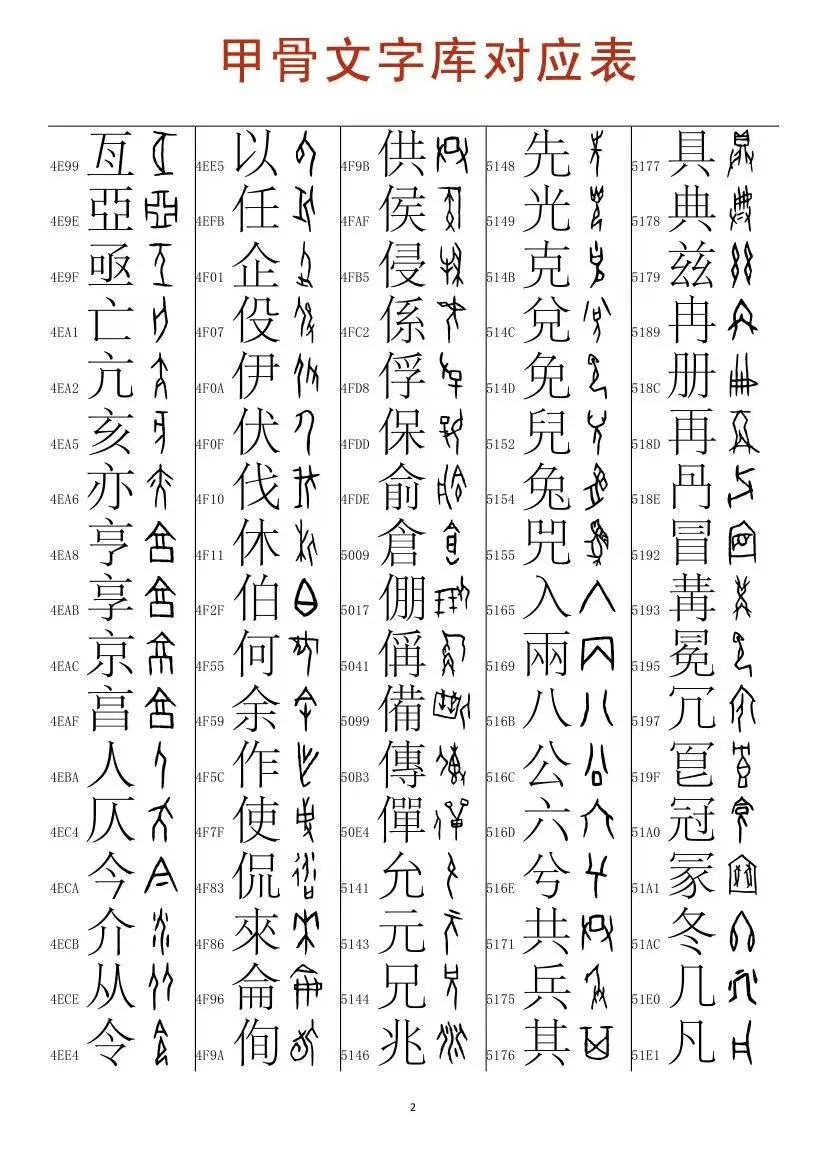 甲骨文字库对应表
4E99 亙
4E9E 亞
4E9F 亟
4EA1 亡
4EA2 亢
4EA5 亥
4EA6 亦
4EA8 亨
4EAB 享
4EAC 京
4EAF 亯
4EBA 人
4EC4 仄
4ECA 今
4ECB 介
4ECE 从
4EE4 令
4EE5 以
4EFB 任
4F01 企
4F07 伇
4F0A 伊
4F0F 伏
4F10 伐
4F11 休
4F2F 伯
4F55 何
4F59 余
4F5C 作
4F7F 使
4F83 侃
4F86 來
4F96 侖
4F9A 侚
4F9B 供
4FAF 侯
4FB5 侵
4FC2 係
4FD8 俘
4FDD 保
4FDE 俞
5009 倉
5017 倗
5041 偁
5099 備
50B3 傳
50E4 僤
5141 允
5143 元
5144 兄
5146 兆
5148 先
5149 光
514B 克
514C 兌
514D 免
5152 兒
5154 兔
5155 兕
5165 入
5169 兩
516B 八
516C 公
516D 六
516E 兮
5171 共
5175 兵
5176 其
5177 具
5178 典
5179 兹
5189 冉
518C 册
518D 再
518E 冎
5192 冒
5193 冓
5195 冕
5197 冗
519F 冟
51A0 冠
51A1 冡
51AC 冬
51E0 几
51E1 凡
2